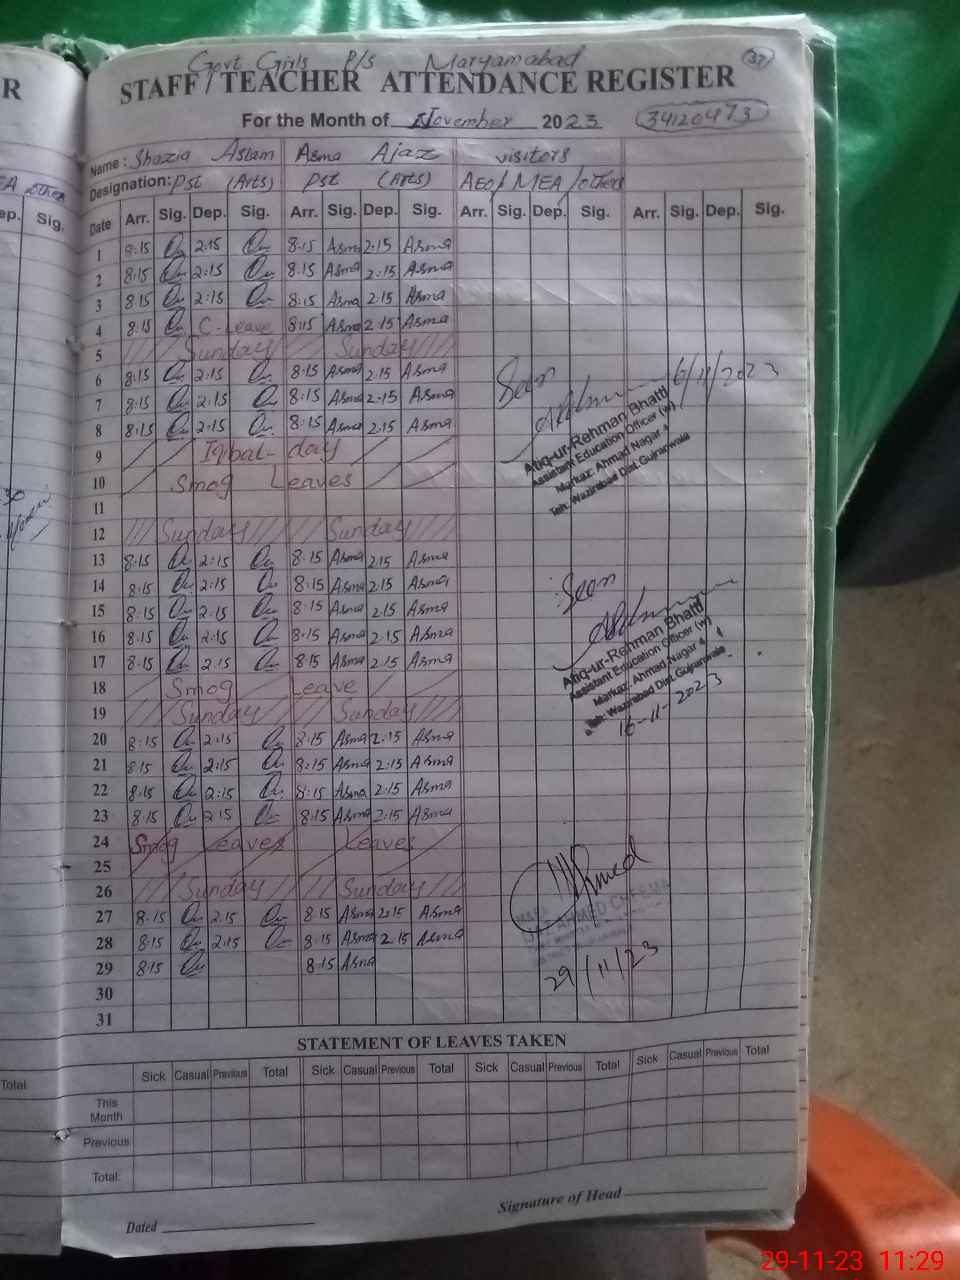 Govt Girls P/S Maryamabad
37
STAFF / TEACHER ATTENDANCE REGISTER
For the Month of November 2023 34120473
Name: Shazia Aslam Asma Ajaz visitors
Designation: Pst (Arts) Pst (Arts) AEO/ MEA /others
Date Arr. Sig. Dep. Sig. Arr. Sig. Dep. Sig. Arr. Sig. Dep. Sig. Arr. Sig. Dep. Sig.
1 8:15 2:15 8:15 Asma 2:15 Asma
2 8:15 2:15 8:15 Asma 2:15 Asma
3 8:15 2:15 8:15 Asma 2:15 Asma
4 8:15 C-Leave 8:15 Asma 2:15 Asma
5 Sunday Sunday
6 8:15 2:15 8:15 Asma 2:15 Asma
7 8:15 2:15 8:15 Asma 2:15 Asma
8 8:15 2:15 8:15 Asma 2:15 Asma
9 Iqbal-day
10 Smog Leaves
11
12 Sunday Sunday
13 8:15 2:15 8:15 Asma 2:15 Asma
14 8:15 2:15 8:15 Asma 2:15 Asma
15 8:15 2:15 8:15 Asma 2:15 Asma
16 8:15 2:15 8:15 Asma 2:15 Asma
17 8:15 2:15 8:15 Asma 2:15 Asma
18 Smog Leave
19 Sunday Sunday
20 8:15 2:15 8:15 Asma 2:15 Asma
21 8:15 2:15 8:15 Asma 2:15 Asma
22 8:15 2:15 8:15 Asma 2:15 Asma
23 8:15 2:15 8:15 Asma 2:15 Asma
24 Smog Leaves Leaves
25
26 Sunday Sunday
27 8:15 2:15 8:15 Asma 2:15 Asma
28 8:15 2:15 8:15 Asma 2:15 Asma
29 8:15 8:15 Asma
30
31
Seen 6/11/2023
Atiq-ur-Rehman Bhatti
Assistant Education Officer (w)
Markaz: Ahmad Nagar 1
Teh: Wazirabad Dist. Gujranwala
Seen
Atiq-ur-Rehman Bhatti
Assistant Education Officer (w)
Markaz: Ahmad Nagar 1
Teh: Wazirabad Dist. Gujranwala
16-11-2023
AHMED CHEEMA
29/11/23
STATEMENT OF LEAVES TAKEN
Sick Casual Previous Total Sick Casual Previous Total Sick Casual Previous Total Sick Casual Previous Total
This Month
Previous
Total:
Dated Signature of Head
R
EA other
ep. Sig.
Total
29-11-23 11:29